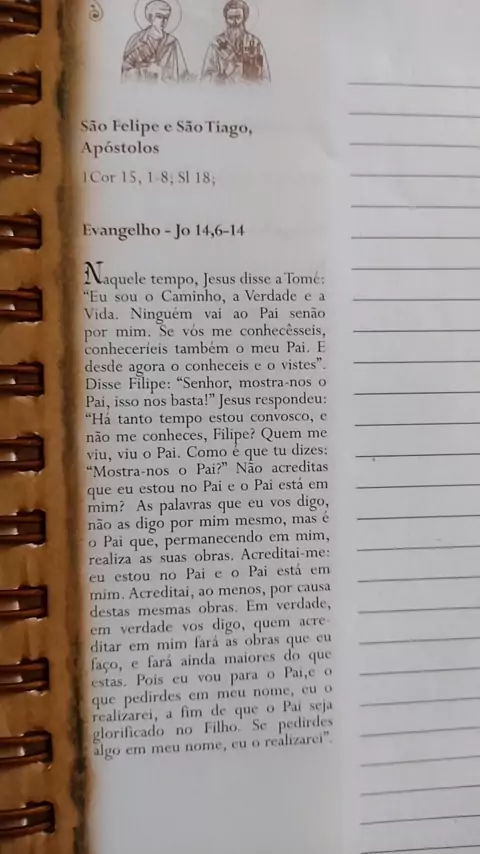 São Felipe e São Tiago,
Apóstolos
1Cor 15, 1-8; Sl 18;
Evangelho - Jo 14,6-14
Naquele tempo, Jesus disse a Tomé:
"Eu sou o Caminho, a Verdade e a
Vida. Ninguém vai ao Pai senão
por mim. Se vós me conhecêsseis,
conheceríeis também o meu Pai. E
desde agora o conheceis e o vistes".
Disse Filipe: "Senhor, mostra-nos o
Pai, isso nos basta!" Jesus respondeu:
"Há tanto tempo estou convosco, e
não me conheces, Filipe? Quem me
viu, viu o Pai. Como é que tu dizes:
"Mostra-nos o Pai?" Não acreditas
que eu estou no Pai e o Pai está em
mim? As palavras que eu vos digo,
não as digo por mim mesmo, mas é
o Pai que, permanecendo em mim,
realiza as suas obras. Acreditai-me:
eu estou no Pai e o Pai está em
mim. Acreditai, ao menos, por causa
destas mesmas obras. Em verdade,
em verdade vos digo, quem acre-
ditar em mim fará as obras que eu
faço, e fará ainda maiores do que
estas. Pois eu vou para o Pai,e o
que pedirdes em meu nome, eu o
realizarei, a fim de que o Pai seja
glorificado no Filho. Se pedirdes
algo em meu nome, eu o realizarei".